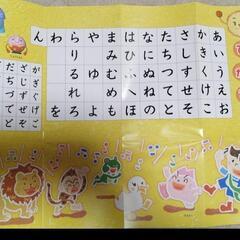 あいうえお
かきくけこ
さしすせそ
たちつてと
なにぬねの
はひふへほ
まみむめも
やゆよ
らりるれろ
わを
ん
がぎぐげご
ざじずぜぞ
だぢづでど